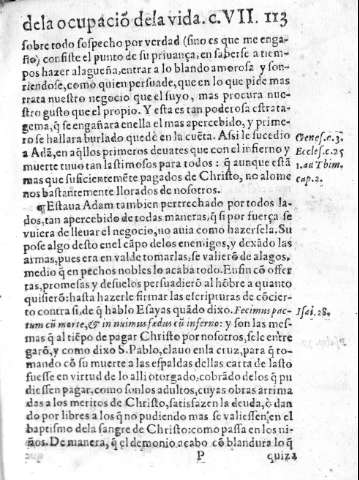 dela ocupaciõ dela vida. c. VII. 113
sobre todo sospecho por verdad (sino es que me enga-
ño) consiste el punto de su priuança, en saberse a tiem-
pos hazer alagueña, entrar a lo blando amorosa y son-
riendose, como quien persuade, que en lo que pide mas
trata nuestro negocio que el suyo, mas procura nue-
stro gusto que el propio. Y esta es tan poderosa estrata-
gema, q̃ se engañara en ella el mas apercebido, y prime-
ro se hallara burlado que dè en la cuẽta. Assi le sucedio
a Adã, en aq̃llos primeros deuates que con el infierno y
muerte tuuo tan lastimosos para todos: q̃ aunque està
mas que suficientemẽte pagados de Christo, no alome
nos bastantemente llorados de nosotros.
Genes. c. 3.
Eccles. c. 25
1. ad Thim.
cap. 2.
¶ Estaua Adam tambien pertrechado por todos la-
dos, tan apercebido de todas maneras, q̃ si por fuerça se
vuiera de lleuar el negocio, no auia como hazersela. Su
pose algo desto en el cãpo delos enemigos, y dexãdo las
armas, pues era en valde tomarlas, se valierõ de alagos,
medio q̃ en pechos nobles lo acaba todo. En fin cõ offer
tas, promesas y desuelos persuadierõ al hõbre a quanto
quisierõ: hasta hazerle firmar las escripturas de cõcier-
to contra si, de q̃ hablo Esayas quãdo dixo. Fecimus pac-
tum cũ morte, & in inimus fœdus cũ inferno: y son las mes-
mas q̃ al tiẽpo de pagar Christo por nosotros, se le entre
garõ, y como dixo S. Pablo, clauo en la cruz, para q̃ to-
mando cõ su muerte a las espaldas desta carta de lasto
fuesse en virtud de lo alli otorgado, cobrãdo delos q̃ pu
diessen pagar, como son los adultos, cuyas obras arrima
das a los meritos de Christo, satisfazen la deuda, ò dan
do por libres a los q̃ no pudiendo mas se valiessen, en el
baptismo dela sangre de Christo: como passa en los ni-
ños. De manera, q̃ el demonio acabo cõ blandura lo q̃
Isai. 28.
P
quiza